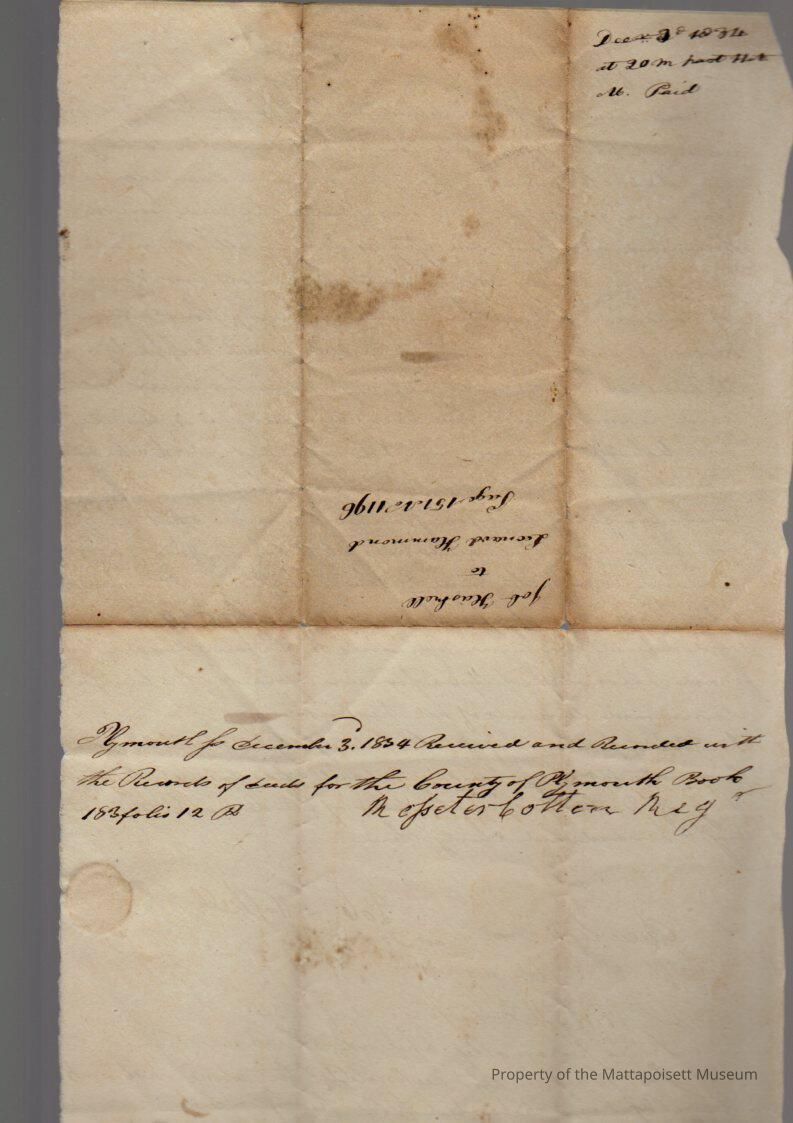 Decr 3d 1834
at 20 m past
M. Paid
Job Haskell
to
Leonard Hammond
Page 151 No 1196
Plymouth ss December 3. 1834 Received and Recorded with
the Records of deeds for the County of Plymouth Book
183 folio 12 Pr
Rosseter Cotton Regr
Property of the Mattapoisett Museum